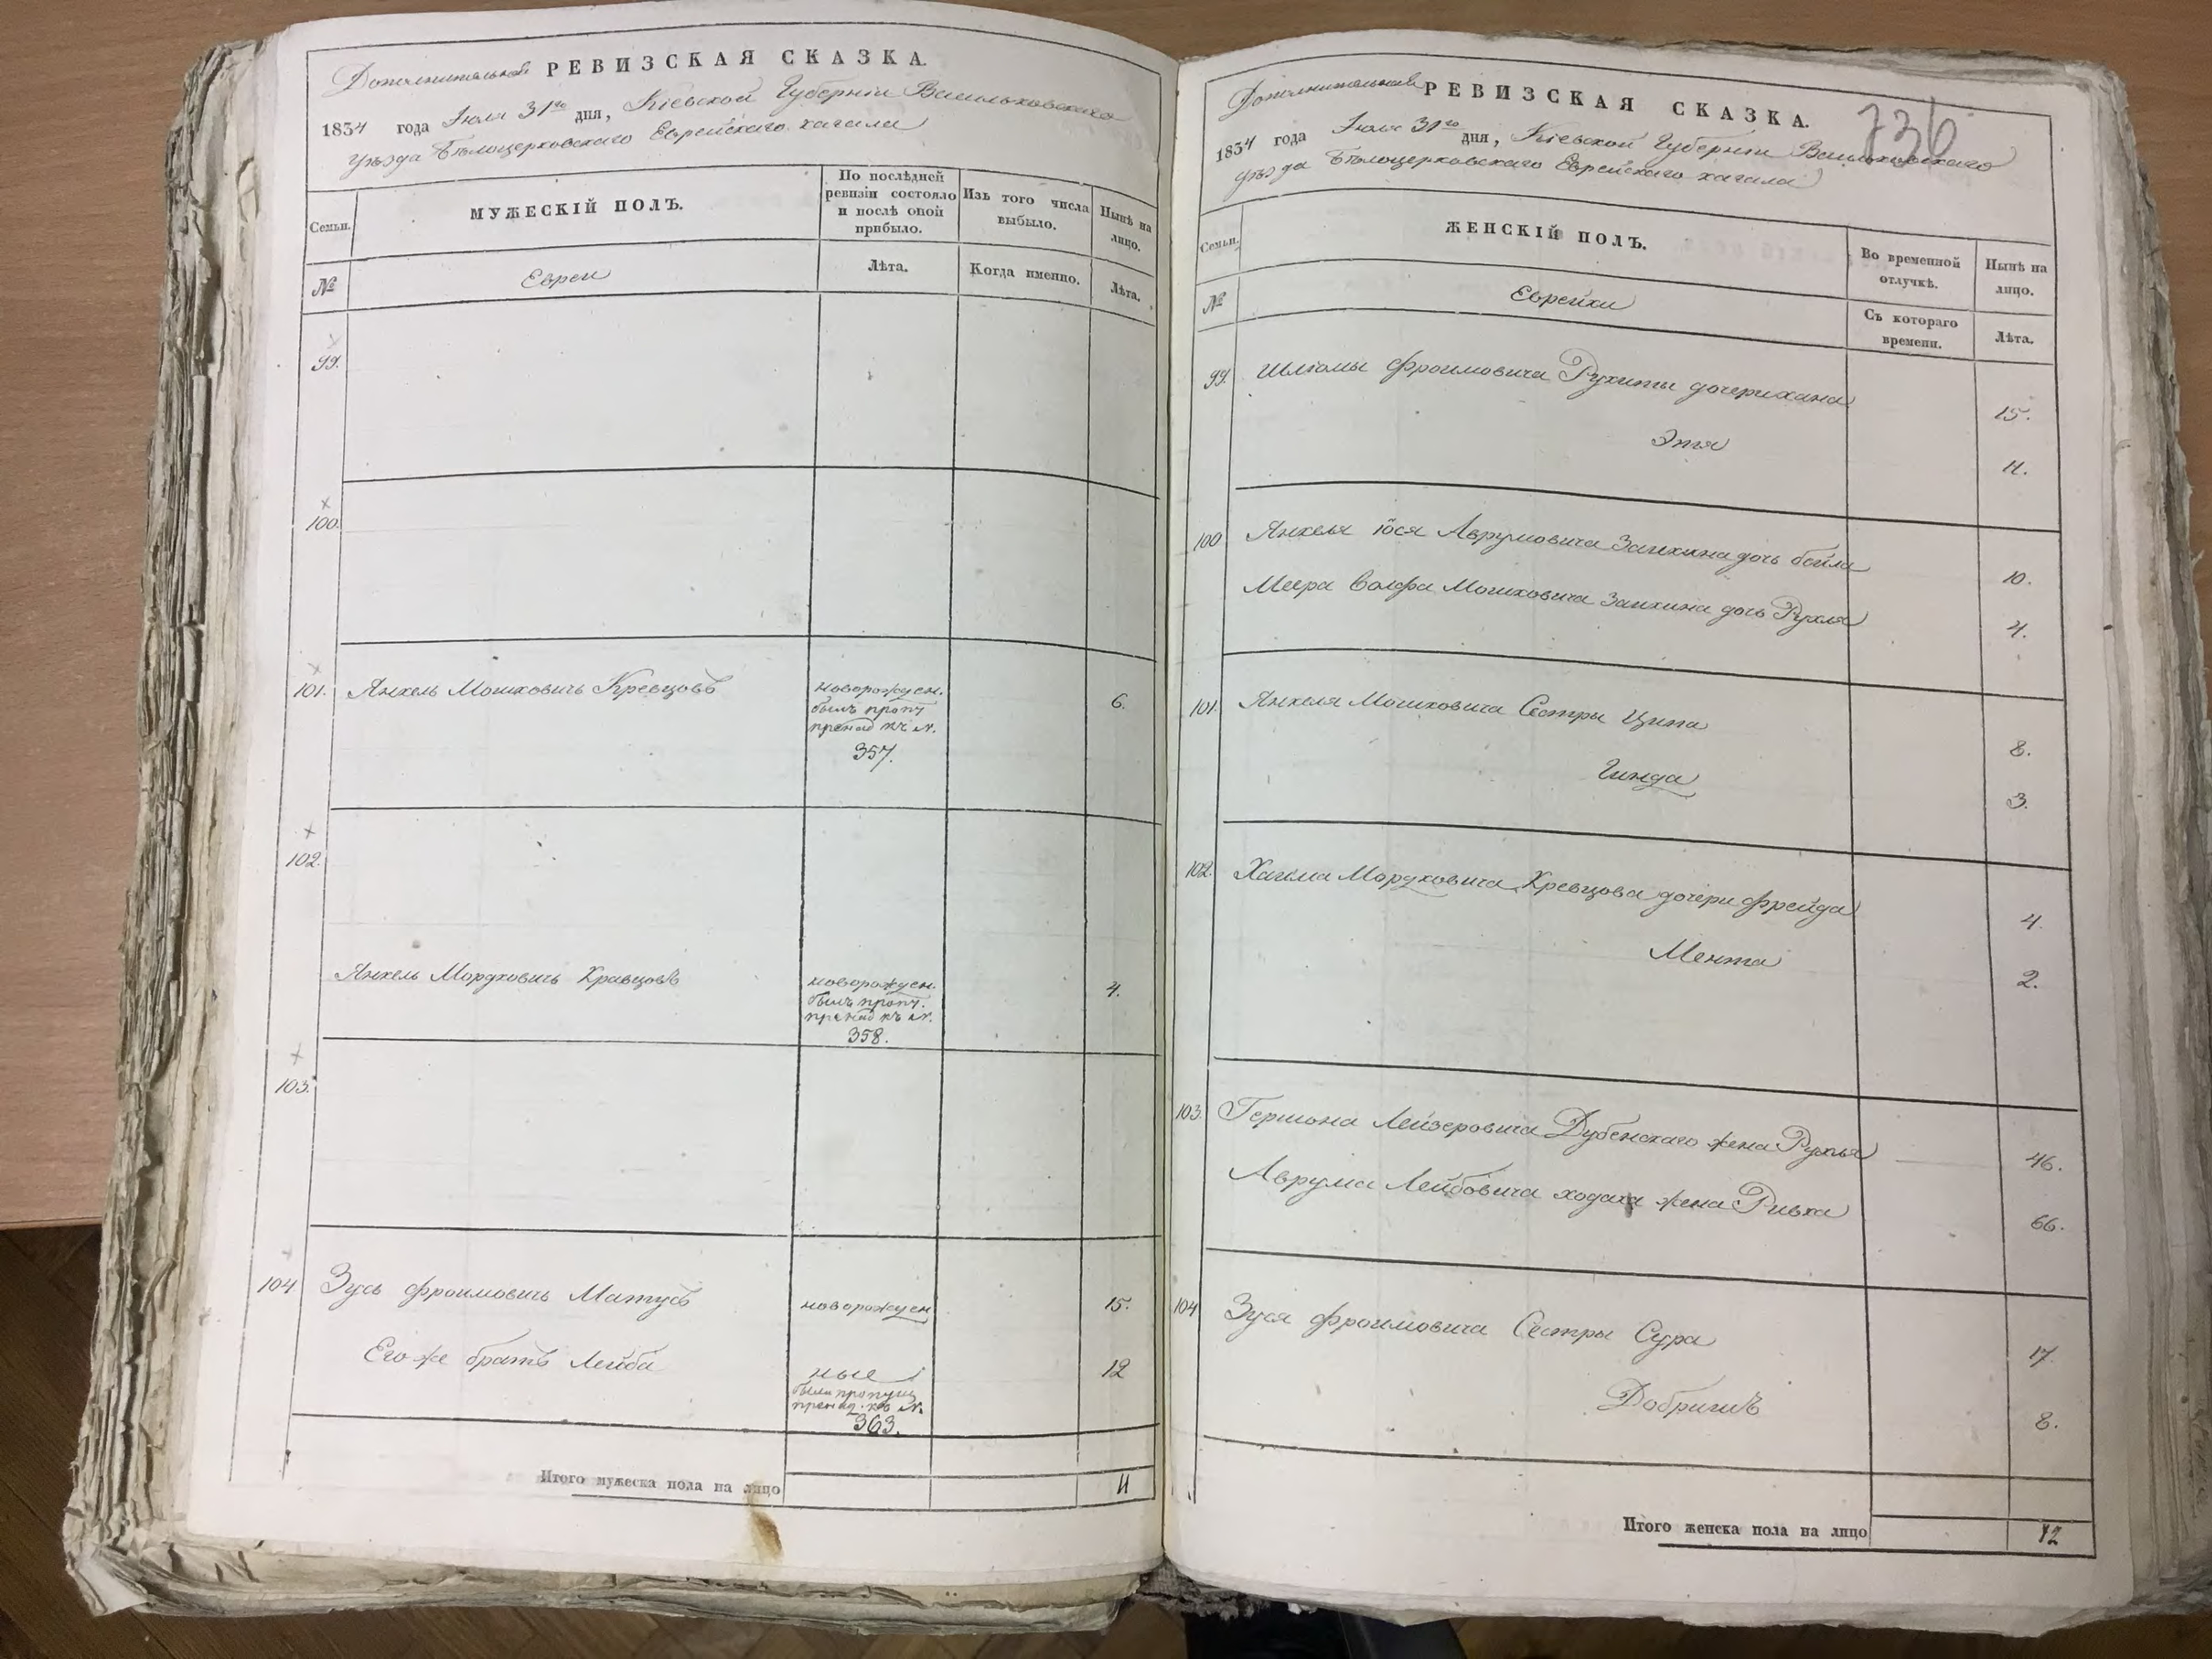 Дополнительная РЕВИЗСКАЯ СКАЗКА.
1834 года Июля 31го дня, Кіевской Губерніи Васильковскаго
уѣзда Бѣлоцерковскаго Еврейскаго кагала
Семьи.
МУЖЕСКІЙ ПОЛЪ.
По послѣдней
ревизіи состояло
и послѣ оной
прибыло.
Изъ того числа
выбыло.
Нынѣ на
лицо.
№
Евреи
Лѣта.
Когда именно.
Лѣта.
99.
100.
101. Янкель Мошковичь Кревцовъ новорожден. 6.
былъ проп
357.
102.
Янкель Мордковичь Кравцовъ новорожден. 4.
былъ проп.
358.
103.
104 Зусь Фроимовичь Матусъ новорожден 15.
Его же братъ Лейба ные 12
были пропущ
363.
Итого мужеска пола на лицо 11
Дополнительная РЕВИЗСКАЯ СКАЗКА.
736
1834 года Июля 31го дня, Кіевской Губерніи Васильковскаго
уѣзда Бѣлоцерковскаго Еврейскаго кагала
Семьи.
ЖЕНСКІЙ ПОЛЪ.
Во временной
отлучкѣ.
Нынѣ на
лицо.
№
Еврейки
Съ котораго
времени.
Лѣта.
99. Шлiомы Фроимовича Рухиты дочери хана 15.
Этя 11.
100 Янкеля Iося Аврумовича Заихина дочь бейла 10.
Меера Волфа Мошковича Заихина дочь Рухля 4.
101. Янкеля Мошковича Сестры Ципа 8.
Гинда 3.
102. Хаима Мордковича Кревцова дочери Фрейда 4.
Мента 2.
103. Гершона Лейзеровича Дубенскаго жена Рухля 46.
Аврума Лейбовича ходака жена Ривка 66.
104 Зуся Фроимовича Сестры Сура 17.
Добришъ 8.
Итого женска пола на лицо 12